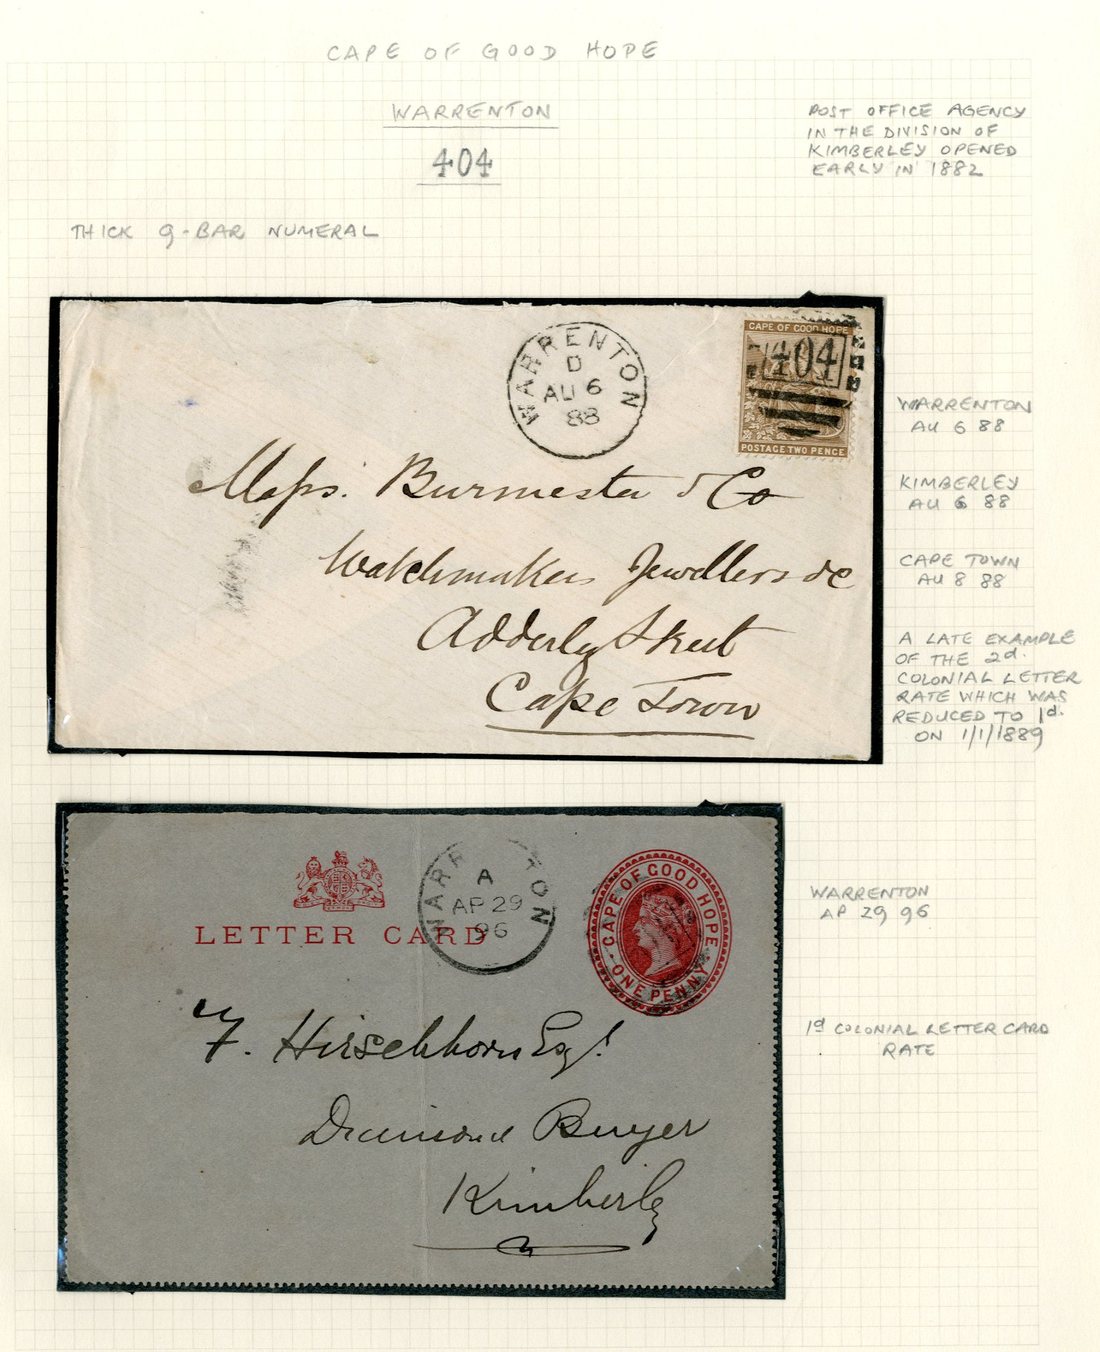 CAPE OF GOOD HOPE
WARRENTON
404
POST OFFICE AGENCY
IN THE DIVISION OF
KIMBERLEY OPENED
EARLY IN 1882
THICK 9-BAR NUMERAL
WARRENTON
D
AU 6
88
CAPE OF GOOD HOPE
404
POSTAGE TWO PENCE
Messrs. Burmester & Co
Watchmakers Jewellers &c
Adderley Street
Cape Town
WARRENTON
AU 6 88
KIMBERLEY
AU 6 88
CAPE TOWN
AU 8 88
A LATE EXAMPLE
OF THE 2d.
COLONIAL LETTER
RATE WHICH WAS
REDUCED TO 1d.
ON 1/1/1889
LETTER CARD
WARRENTON
A
AP 29
96
CAPE OF GOOD HOPE
ONE PENNY
F. Hirschhorn Esq.
Diamond Buyer
Kimberley
WARRENTON
AP 29 96
1d COLONIAL LETTER CARD
RATE